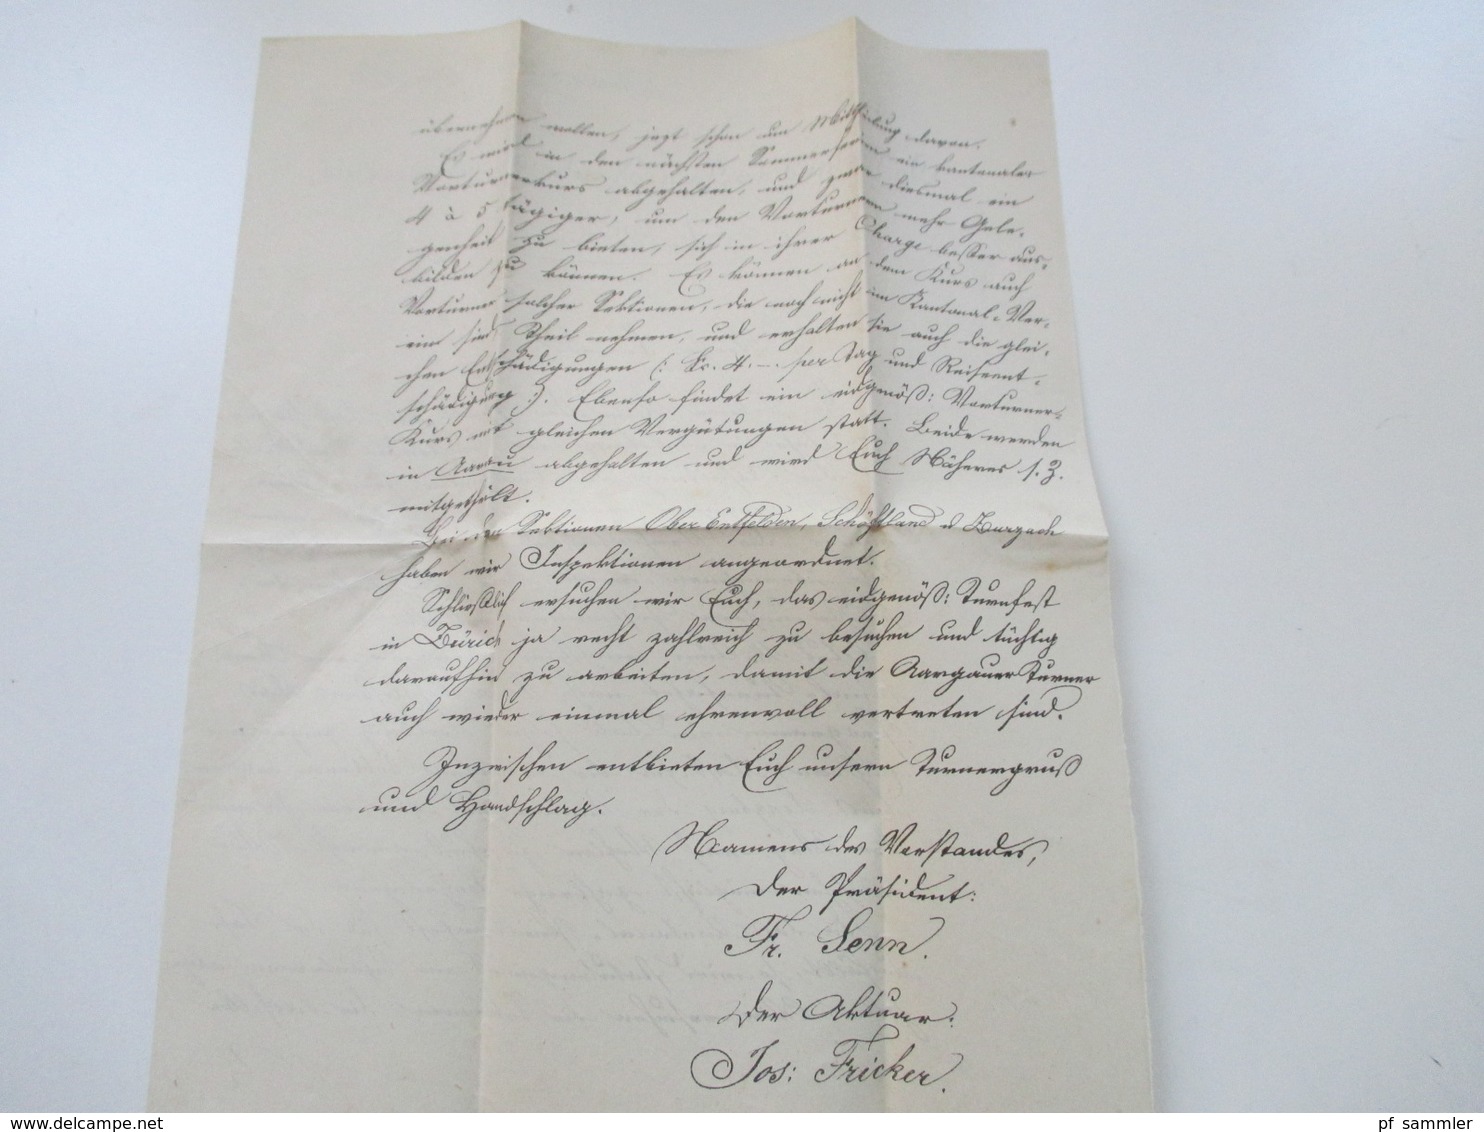 übernehmen wollen, jezt schon um Mittheilung davon.
Es wird in den nächsten Sommerferien ein kantonaler
Vorturnerkurs abgehalten, und zwar diesmal ein
4 à 5 tägiger, um den Vorturnern mehr Gele-
genheit zu bieten, sich in ihrer Charge besser aus-
bilden zu können. Es können an dem Kurs auch
Vorturner solcher Sektionen, die noch nicht im Kantonal-Ver-
ein sind, Theil nehmen, und erhalten sie auch die glei-
chen Entschädigungen (: Fr. 4. – per Tag und Reiseent-
schädigung :). Ebenso findet ein eidgenöß: Vorturner-
Kurs mit gleichen Vergütungen statt. Beide werden
in Aarau abgehalten und wird Euch Näheres s. Z.
mitgetheilt.
Bei den Sektionen Ober Entfelden, Schöftland & Zurzach
haben wir Inspektionen angeordnet.
Schließlich ersuchen wir Euch, das eidgenöß: Turnfest
in Zürich ja recht zahlreich zu besuchen und tüchtig
daraufhin zu arbeiten, damit die Aargauer Turner
auch wieder einmal ehrenvoll vertreten sind.
Inzwischen entbieten Euch unsern Turnergruß
und Handschlag.
Namens des Vorstandes,
Der Präsident:
Fr. Senn.
Der Aktuar:
Jos: Fricker.
pf sammler
delcampe.net